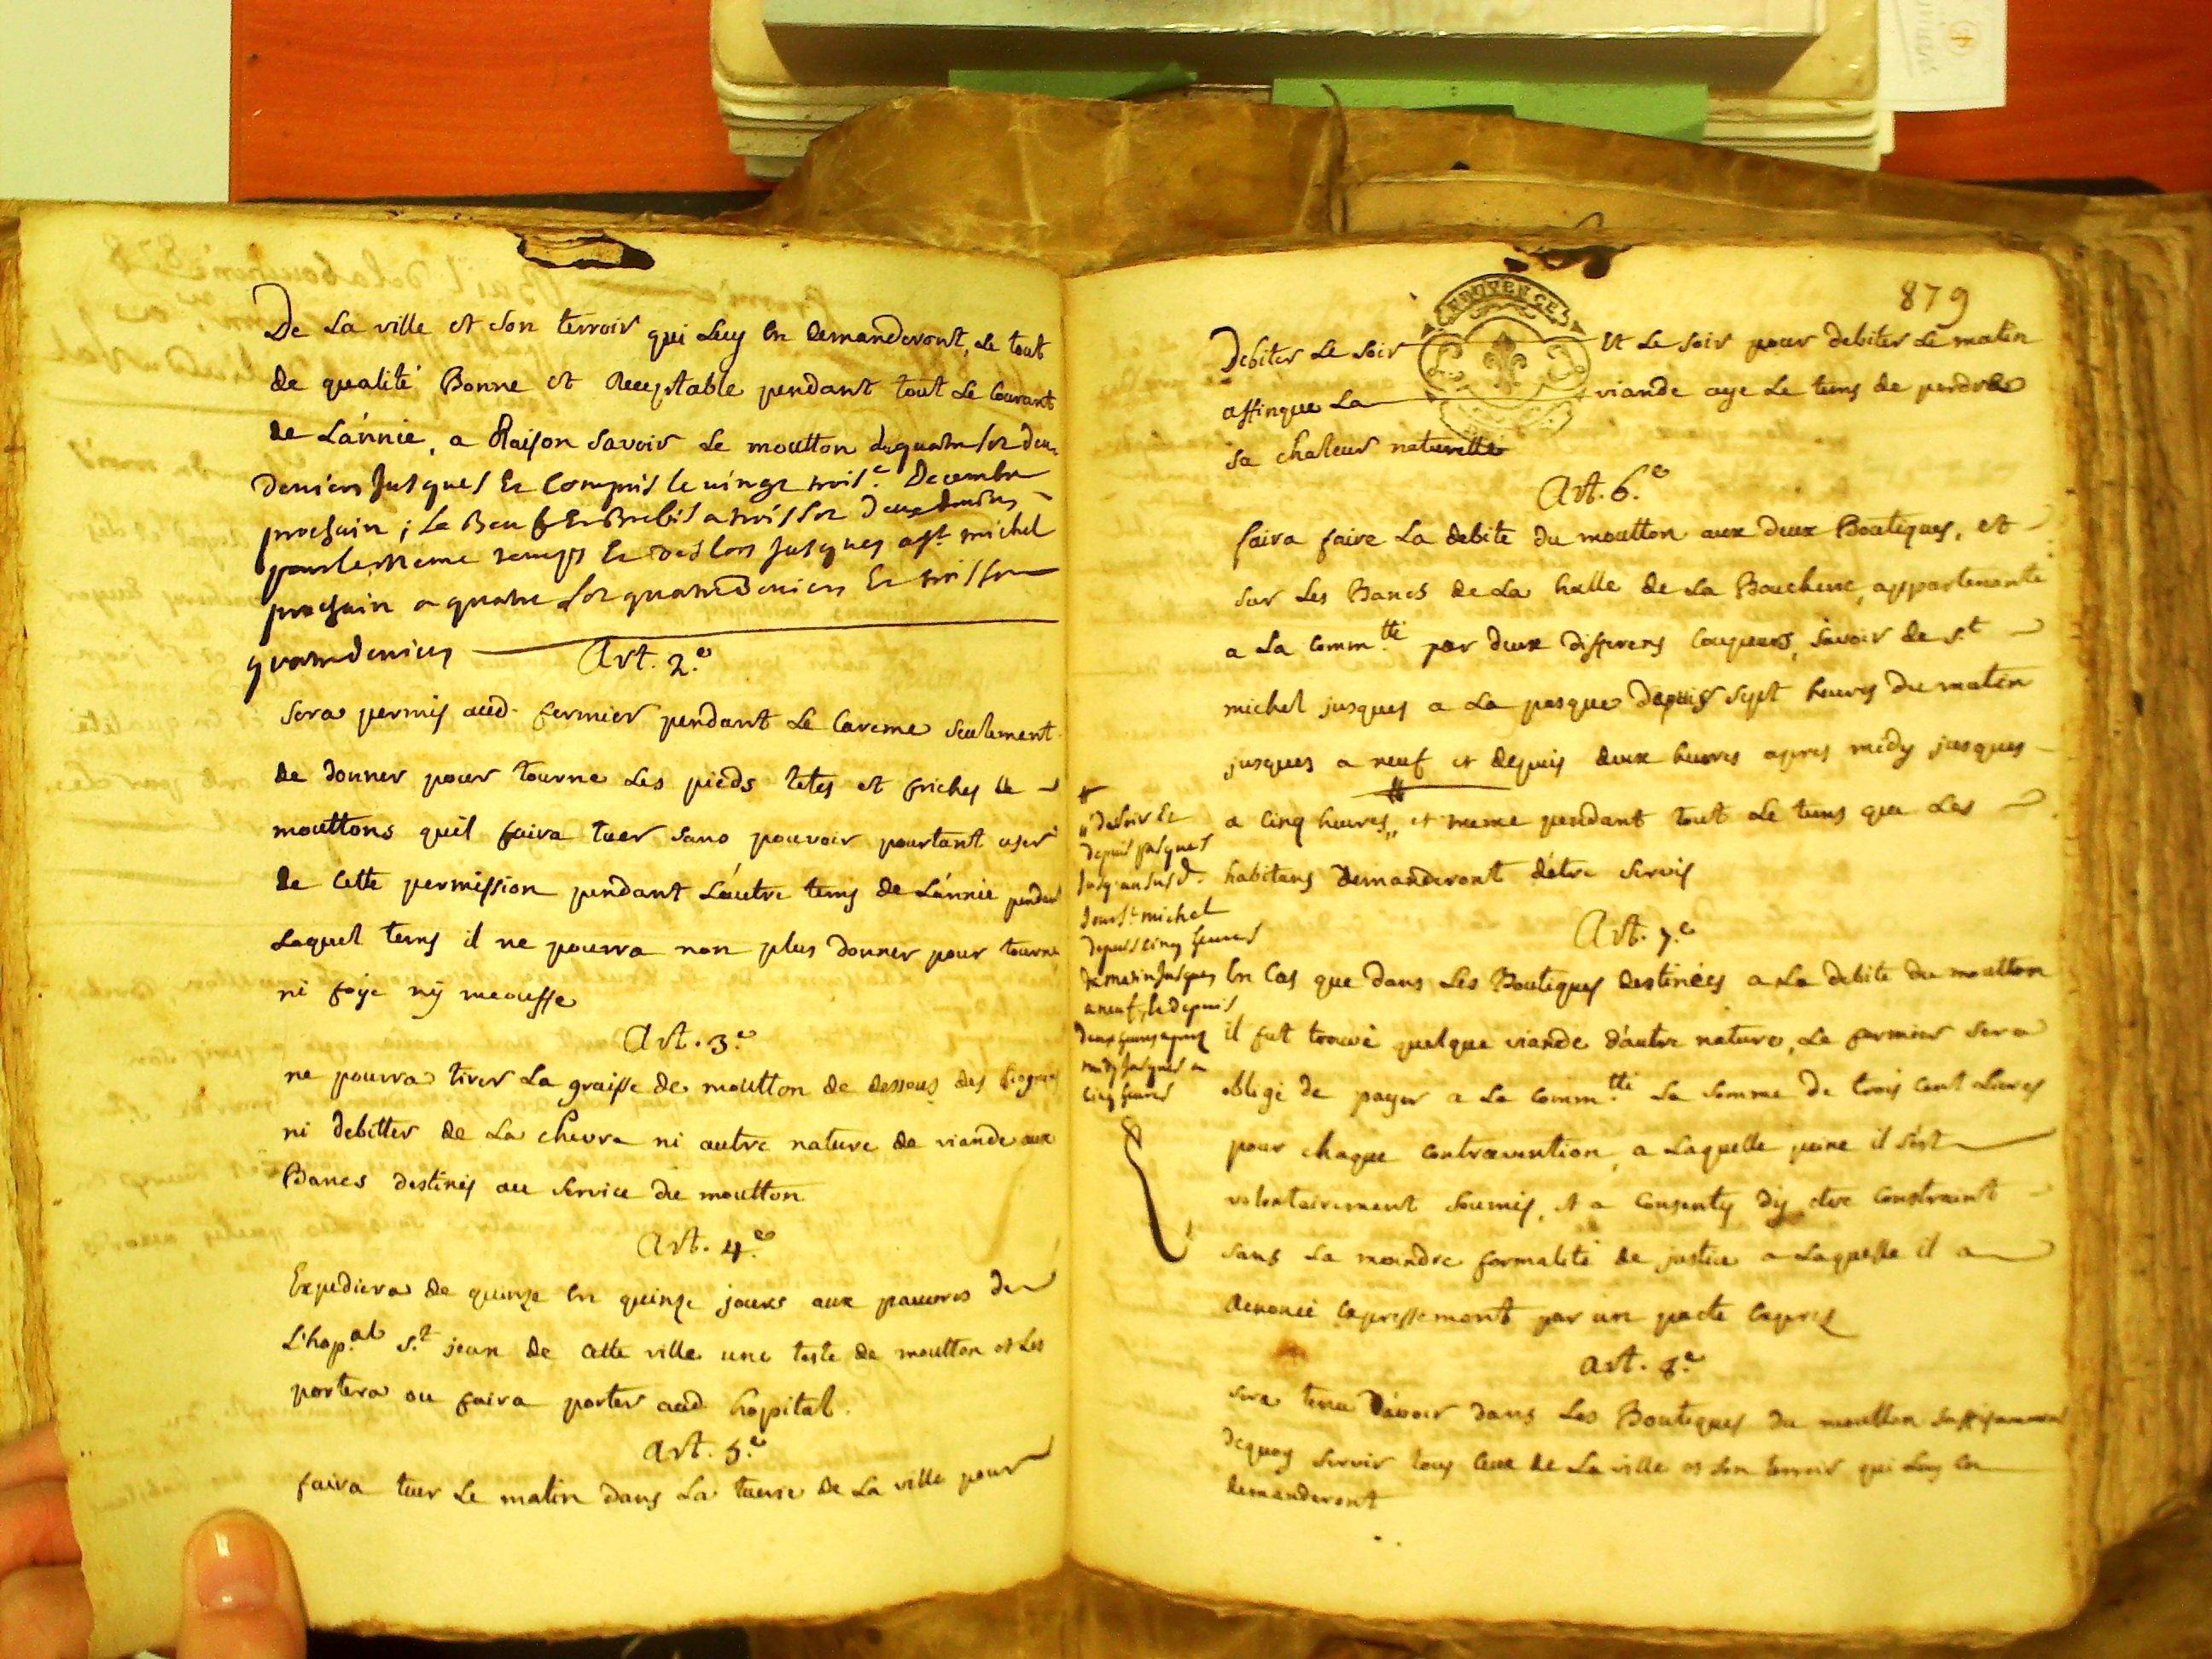 De La ville et son terroir qui Luy en demanderont, Le tout
de qualité Bonne et Receptable pendant tout Le Courant
de L'année, a Raison savoir Le moutton a quatre sol deux
deniers Jusques Et Compris le vingt trois.e Decembre
prochain ; Le Beuf Et Brebis a trois sol deux deniers
pour le meme temps Et des lors Jusques a st. michel
prochain a quatre sol quatre deniers Et trois sol
quatre deniers
Art. 2.e
Sera permis aud. fermier pendant Le Careme seulement
de donner pour tourne Les pieds tetes et friches de
mouttons quil faira tuer sans pouvoir pourtant user
de Cette permission pendant L'autre tems de L'année pendant
Laquel tems il ne pourra non plus donner pour tourne
ni foÿe nÿ meousse
Art. 3.e
ne pourra tirer La graisse de moutton de dessous des
ni debitter de La chevre ni autre nature de viande aux
Bancs destinés au service du moutton
Art. 4.e
Expediera de quinze en quinze jours aux pauvres de
L'hop.al s.t jean de Cette ville une teste de moutton et Les
portera ou faira porter aud. hopital.
Art. 5.e
faira tuer Le matin dans La tuerie de La ville pour
879
PROVENCE
Debiter Le soir Et Le soir pour debiter Le matin
affinque La viande aye Le tems de perdre
sa chaleur naturelle
Art. 6.e
faira faire La debite du moutton aux deux Boutiques, et
sur Les Bancs de La halle de La Boucherie, appartenante
a La Comm.tté par deux differens Coupeurs, savoir de s.t
michel jusques a La pasque depuis sept heures du matin
jusques a neuf et depuis deux heures apres midy jusques
a Cinq heures,, et meme pendant tout Le tems que Les
habitans demanderont d'etre servis
# ,, du soir Et
depuis pasques
Jusqu'au susd.
Jour st. michel
depuis cinq heures
du matin Jusques
a neuf, Et depuis
deux heures apres
midy Jusques a
Cinq heures
Art. 7.e
En Cas que dans Les Boutiques destinées a La debite du moutton
il fut trouvé quelque viande d'autre nature, Le fermier sera
obligé de payer a La Comm.tté La somme de trois Cent Livres
pour chaque Contravention, a Laquelle peine il s'est
volontairement soumis, et a Consenty dÿ etre Constraint
sans La moindre formalité de justice a Laquelle il a
Renoncé Expressement par un pacte Exprés
Art. 8.e
sera tenu d'avoir dans Les Boutiques du moutton suffisamment
dequoy servir tous Ceux de La ville et son terroir qui Luy En
demanderont